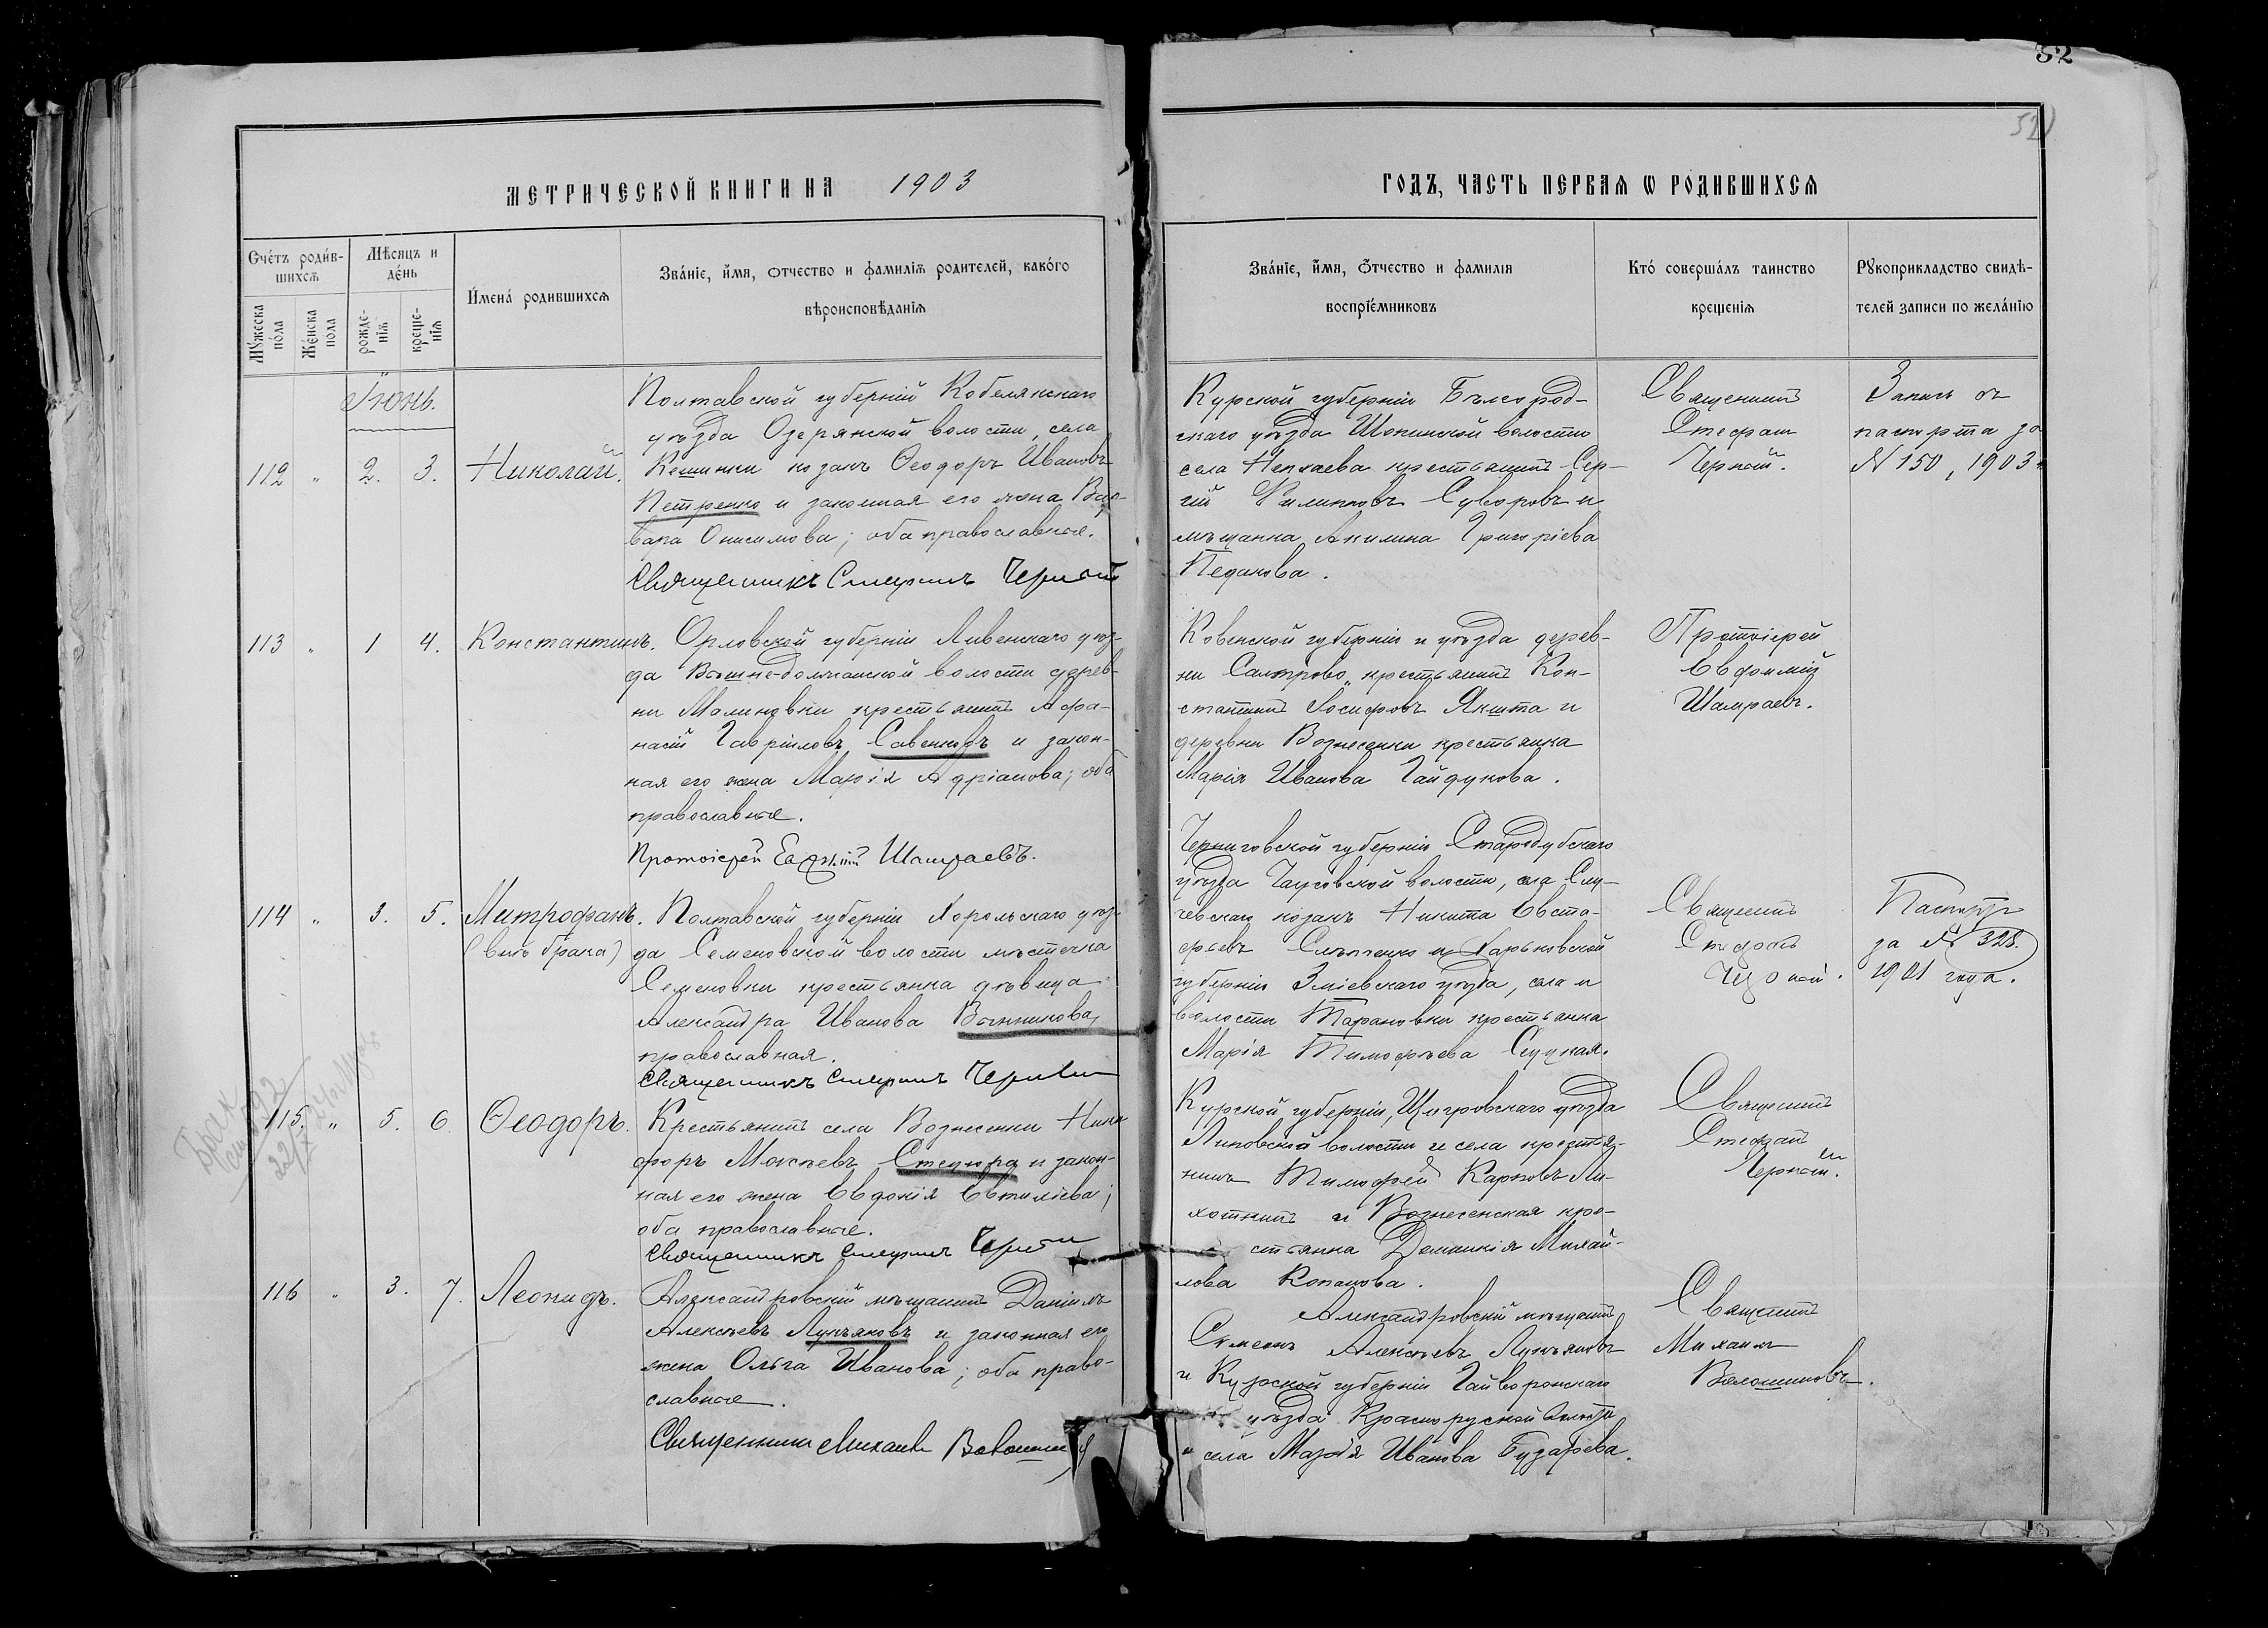 52
52
МЕТРИЧЕСКОЙ КНИГИ НА 1903
ГОДЪ, ЧАСТЬ ПЕРВАЯ Ѡ РОДИВШИХСЯ
Счетъ родив-
шихся
Мужеска пола
Женска пола
Мѣсяцъ и
день
рожде-
нія
креще-
нія
Имена родившихся
Званіе, имя, отчество и фамилія родителей, какого
вѣроисповѣданія
Званіе, имя, отчество и фамилія
воспріемниковъ
Кто совершалъ таинство
крещенія
Рукоприкладство свидѣ-
телей записи по желанію
Іюнь.
112 " 2. 3. Николай.
Полтавской губерніи Кобелякскаго
уѣзда Озерянской волости, села
Кешинки козакъ Ѳеодоръ Ивановъ
Петренко и законная его жена Вар-
вара Онисимова; оба православные.
Священникъ Стефанъ Черный
Курской губерніи Бѣлгород-
скаго уѣзда Шопинской волости
села Непхаева крестьянинъ Сер-
гій Филипповъ Суворовъ и
мѣщанка Акилина Григоріева
Педанова.
Священникъ
Стефанъ
Черный.
Запись съ
паспорта за
№ 150, 1903
113 " 1 4. Константинъ.
Орловской губерніи Ливенскаго уѣз-
да Вышне-Должанской волости дерев-
ни Малиновки крестьянинъ Афа-
насій Гавріиловъ Савенковъ и закон-
ная его жена Марія Адріанова; оба
православные.
Протоіерей Евфимій Шамраевъ.
Ковенской губерніи и уѣзда дерев-
ни Салтрово крестьянинъ Кон-
стантинъ Іосифовъ Якшта и
деревни Вознесенки крестьянка
Марія Иванова Гайдукова.
Протоіерей
Евфимій
Шамраевъ.
114 " 3. 5. Митрофанъ.
(внѣ брака)
Полтавской губерніи Хорольскаго уѣз-
да Семеновской волости мѣстечка
Семеновки крестьянка дѣвица
Александра Иванова Винникова,
православная.
Священникъ Стефанъ Черный
Черниговской губерніи Стародубскаго
уѣзда Чаусовской волости, села Слу-
чевскаго козакъ Никита Евста-
фьевъ и Харьковской
губерніи Зміевскаго уѣзда, села и
волости Тарановки крестьянка
Марія Тимофѣева Слуцкая.
Священникъ
Стефанъ
Черный.
Паспортъ
за № 328.
1901 года.
115. " 5. 6. Ѳеодоръ.
Крестьянинъ села Вознесенки Ника-
форъ Мокіевъ Стецюра и закон-
ная его жена Евдокія Евтихіева;
оба православные.
Священникъ Стефанъ Черный
Курской губерніи, Щигровскаго уѣзда
Липовской волости и села крестья-
нинъ Тимофей Карповъ Ли-
хотинъ и Вознесенская кре-
стьянка Домникія Михай-
лова Копанова.
Священникъ
Стефанъ
Черный.
Брак
22/
116 " 3. 7. Леонидъ.
Александровскій мѣщанинъ Даніилъ
Алексѣевъ Лукьяновъ и законная его
жена Ольга Иванова; оба право-
славные.
Священникъ Михаилъ Волошиновъ
Александровскій мѣщанинъ
Симеонъ Алексѣевъ Лукьяновъ
и Курской губерніи Гайворонскаго
уѣзда Краснорузской волости
и села Марія Иванова Бузарева.
Священникъ
Михаилъ
Волошиновъ.